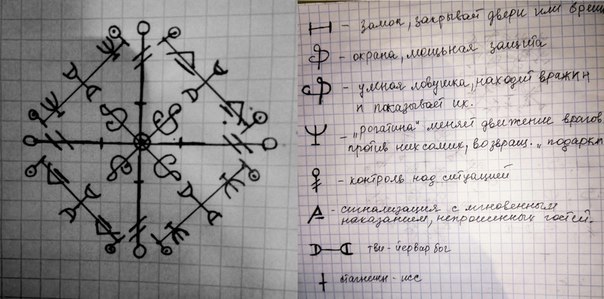 - замок, закрывай двери или
- охрана, мощьная защита
- умная ловушка, находит вражин
и показывает их.
- „рогатина" меняет движение врагов
против них самих, возвращ. „подарки
- контроль над ситуацией
- сигнализация с мгновенным
наказанием, непрошенных гостей.
- тви-йервар бог
- стагнейн-исс